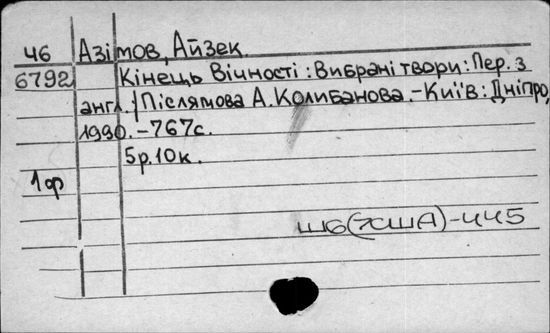 Ч6 Азімов, Айзек
6792 Кінець Вічності : Вибрані твори : Пер. з
англ. / Післямова А. Колибанова. - Київ : Дніпро,
1990. - 767с.
5р.10к.
1 ор
Ш6(7США)-445